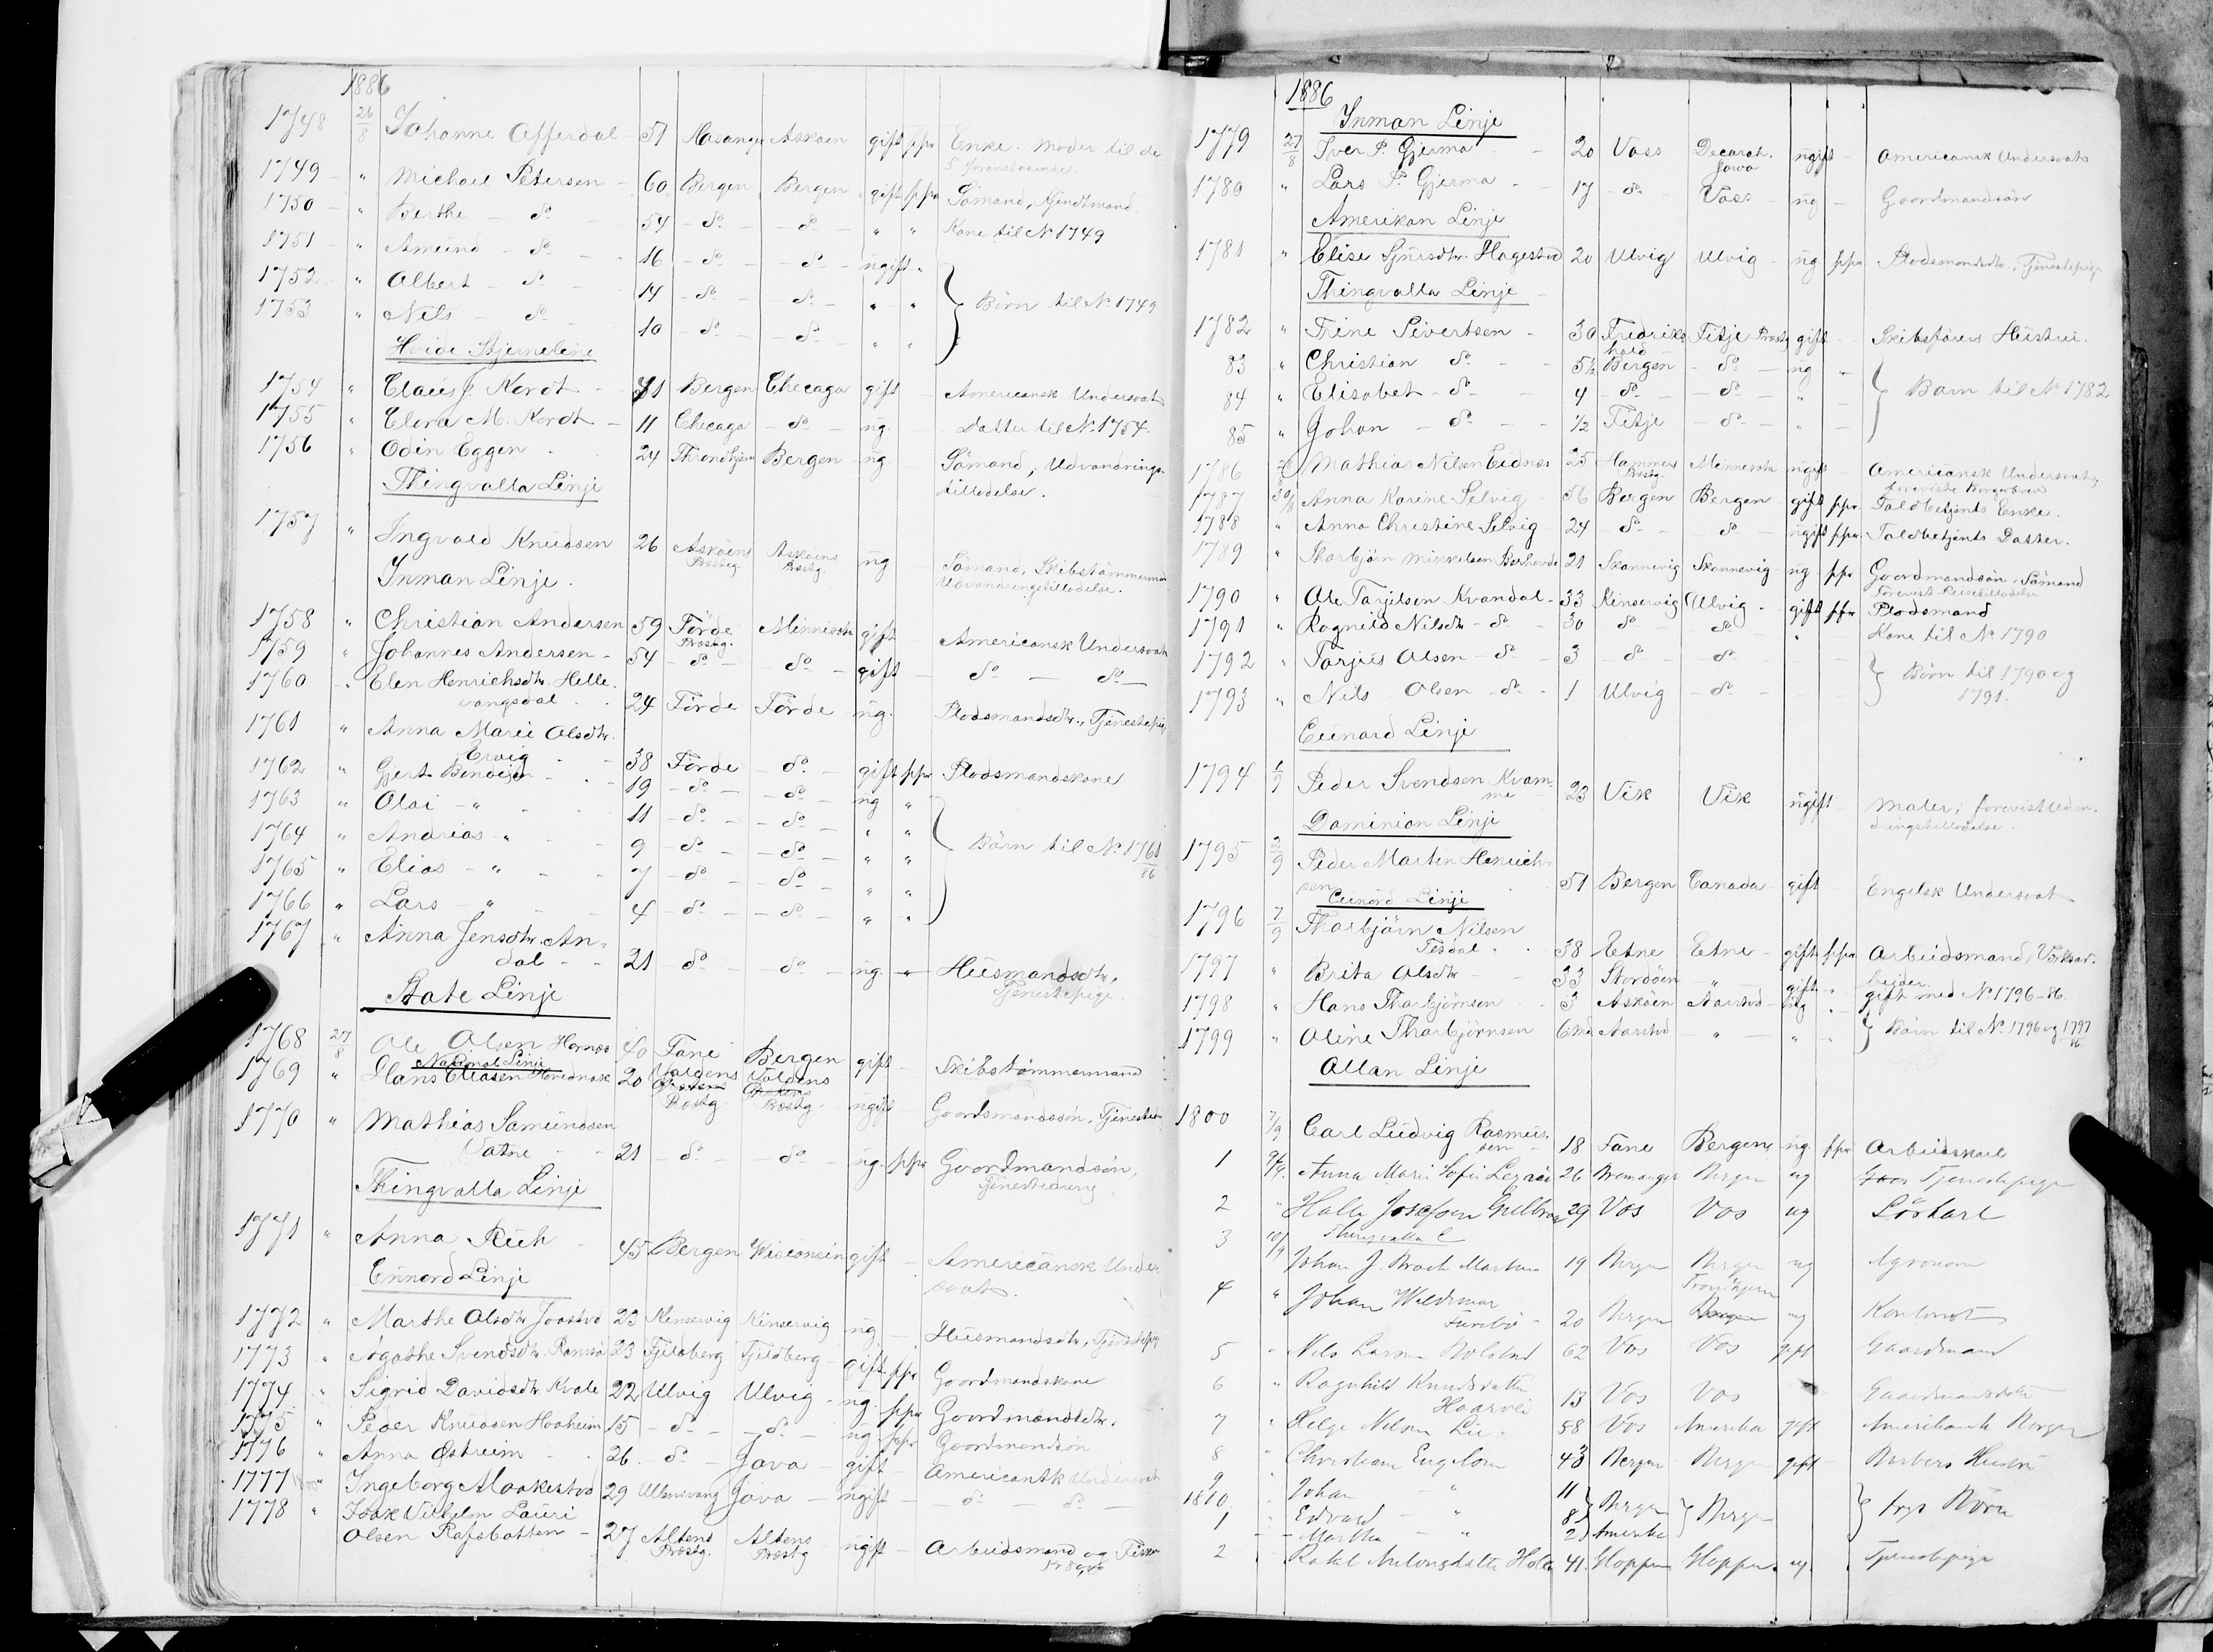 1886
1748 26/8 Johanne Offerdal - 51 Hosanger Askøen gift ppr Enke. Moder til de
5 foranstaaende.
1749 " Michael Petersen - 60 Bergen Bergen gift ppr Sømand, Kjendtmand
1750 " Berthe - do - 54 - do - - do - " " Kone til No 1749
1751 " Amund - do - 16 - do - - do - ugift "
1752 " Albert - do - 14 - do - - do - " " } Børn til No 1749
1753 " Nils - do - 10 - do - - do - " "
Hvide Stjernelinie
1754 " Claus J. Kordt - 41 Bergen Checago gift - Americansk Undersaat
1755 " Clara M. Kordt - 11 Checago - do - ug. - Datter til No 1754.
1756 " Odin Eggen - 24 Throndhjem Bergen - ug Sømand, Udvandrings-
tilladelse.
Thingvalla Linje
1757 " Ingvald Knudsen 26 Askøens Prestg. Askøens Prestg. ug Sømand, Skibstømmermand
Udvandringstilladelse.
Inman Linje.
1758 " Christian Andersen 59 Førde Prestg. Minnesota gift - Americansk Undersaat
1759 " Johannes Andersen - 54 - do - - do - gift - do - do -
1760 " Elen Henrichsdtr. Helle-
vangsdal 24 Førde Førde ug. Pladsmandsdtr., Tjenestepige
1761 " Anna Marie Olsdtr.
Ervig - 38 Førde - do - gift ppr Pladsmandskone
1762 " Gjert Bendign - 19 - do - - do - ug "
1763 " Olai - " - 11 - do - - do - " "
1764 " Andrias - " - 9 - do - - do - " " } Børn til No 1761/86
1765 " Elias - " - 7 - do - - do - " "
1766 " Lars - " - 4 - do - - do - " "
1767 " Anna Jensdtr. An-
dal - 21 - do - - do - ug. - Husmandsdtr,
Tjenestepige.
State Linje
1768 27/8 Ole Olsen Hornes 40 Fane Bergen gift - Skibstømmermand
National Linje
1769 " Hans Eliasen 20 Valdens Prestg Valdens Prestg - ugift - Gaardsmandssøn, Tjenestedr
1770 " Mathias Samundsen
Vatne - 21 - do - - do - ug. ppr Gaardmandsøn,
Tjenestedreng
Thingvalla Linje
1771 " Anna Rieh - 45 Bergen Wisconsin gift - Americansk Under-
saat.
Cunard Linje
1772 " Marthe Olsdtr Joastad 23 Kinservig Kinservig ug - Husmandsdtr, Tjenestepig
1773 " Agathe Svendsdtr. 23 Fjelberg Fjeldberg gift ppr Gaardmandskone
1774 " Sigrid Davidsdtr. Kvale 22 Ulvig Ulvig - ug. ppr Gaardmandsdtr.
1775 " Peder Knudsen Haaheim 15 - do - - do - ug ppr Gaardmandsøn
1776 " Anna Østreim - 26 - do - Jova - gift - Americansk Undersaat
1777 " Ingeborg Maakestad 29 Ullensvang Jova - ugift - do - do -
1778 " Isak Vilhelm Lauri
Olsen Rafsbotten - 27 Altens Prestg. Altens Prestg ugift - Arbeidsmand og Fisker
1886
Inman Linje
1779 27/8 Iver P. Gjerma - 20 Voss Decorah. Jowa ugift - Americansk Undersaats
1780 " Lars P. Gjerma - 17 - do - Voss ug - Gaardmandsøn
Amerikan Linje
1781 " Elise Sjursdtr. Hagestad 20 Ulvig Ulvig - ug ppr Pladsmandsdtr., Tjenestepige
Thingvalla Linje
1782 " Trine Sivertsen - 30 Fredriks hald Titje Prestg gift - Skibsførers Hustru.
83 " Christian do - 5½ Bergen - do - ug "
84 " Elisabet - do - 4 - do - - do - " - } Børn til No 1782
85 " Johan - do - ½ Titje - do - " -
1786 Mathias Nilsen Eidnes 25 Hammers Prestg. Minnesota ugift - Americansk Undersaat,
foreviste Borgerbrev
1787 30/8 Anna Karine Selvig - 56 Bergen Bergen - gift ppr. Toldbetjents Enke.
1788 " Anna Christine Selvig - 24 - do - do - ugift ppr. Toldbetjents Datter.
1789 " Thorbjørn Mikkelsen 21 Skonnevig Skonnevig - ug ppr Gaardmandsøn, Sømand
Forevist Reisetilladelse
1790 " Ole Tarjelsen Kvandal - 33 Kinservig Ulvig - gift ppr Pladsmand
1791 " Ragnild Nilsdtr - do - 30 - do - do - " Kone til No 1790
1792 " Tarjus Olsen - do - 3 - do - - do - } Børn til 1790 og
1793 " Nils Olsen - do - 1 Ulvig - do - 1791.
Cunard Linje
1794 1/9 Peder Svendsen Kvam-
me 23 Vik Vik ugift - Maler, forevist Udvan-
dringstilladelse.
Dominion Linje
1795 2/9 Peder Martin Henrich-
sen 51 Bergen Canada - gift Engelsk Undersaat
Cunard Linje
1796 7/9 Thorbjørn Nilsen
Tesdal - 38 Etne Etne - gift ppr Arbeidsmand, Verksar-
beider.
1797 " Brita Olsdtr - 33 Stordøen " - gift " gift med No 1796-86.
1798 " Hans Thorbjørnsen - 3 Askøen Aarstad - ug "
1799 " Oline Thorbjørnsen 6 md Aarstad - " - " " } Børn til No 1796 og 1797/86
Allan Linje
1800 7/9 Carl Ludvig Rasmus-
sen - 18 Fane Bergen ug. ppr Arbeidskarl
1 9/9 Anna Marie Sofie 26 Bremanger Bergen ug Tjenestepige
2 " Halle Josefsen 29 Vos Vos ug Løskarl
Thingvalla L
3 10/9 Johan J. 19 Bergen Bergen ug Agronom
4 " Johan Waldemar
20 Bergen Trondhjem ug Kontorist
5 " Nils Larsen Rolstad 62 Vos Vos gift Gaardmand
6 " Ragnhild Knudsdatter
13 Vos Vos Gaardmandsdatter
7 " Helge Nilsen Lie - 58 Vos Amerika gift Amerikansk Borger
8 " Christiane Engelsen 43 Bergen Bergen gift Barbers Hustru
9 " Johan - " 11
1810 " Edvard - " 8 } Bergen } Bergen } Børn
1 - Martha - " 2 Amerika
2 " Rakel 41 Gloppen Gloppen. ug. Tjenestepige